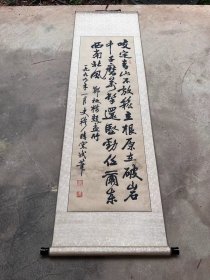 咬定青山不放鬆立根原在破岩
中千磨萬擊還堅勁任爾東
西南北風 鄭板橋題
一九九年一月